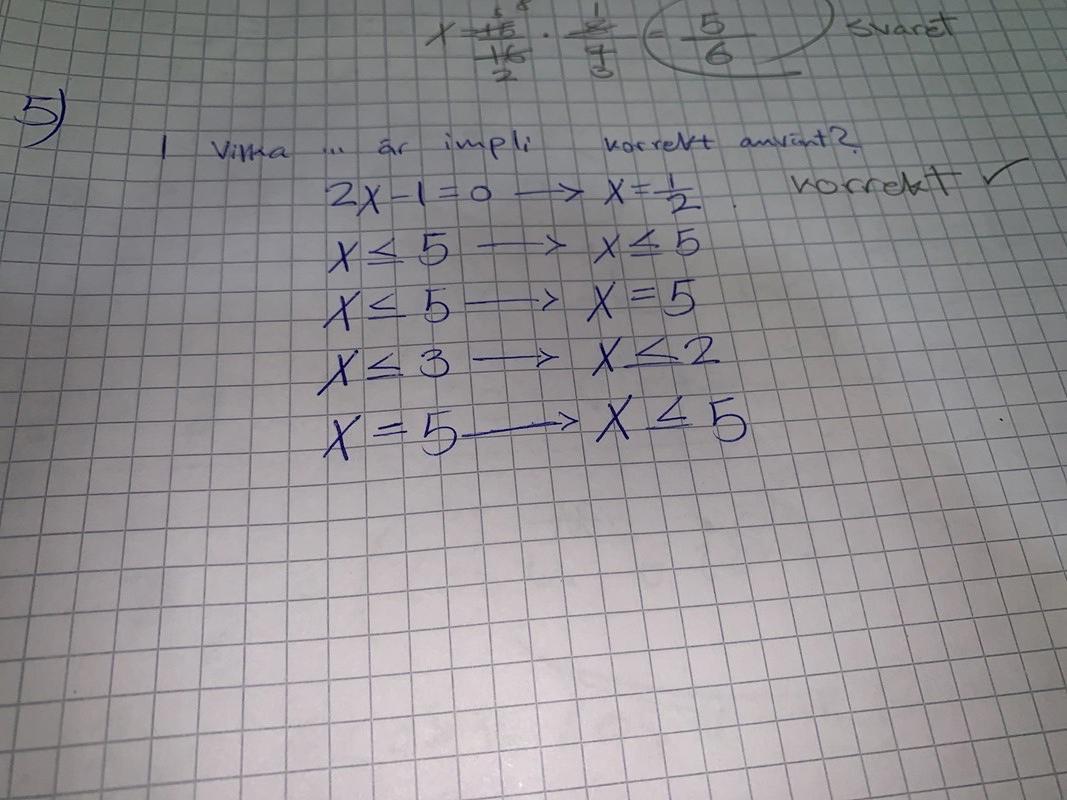 x = 15/16 · 8/9 = 5/6 svaret
5)
I vilka ... är impli korrekt använt?
2x-1=0 → x=1/2 korrekt ✓
x ≤ 5 → x ≤ 5
x ≤ 5 → x = 5
x ≤ 3 → x ≤ 2
x = 5 → x ≤ 5